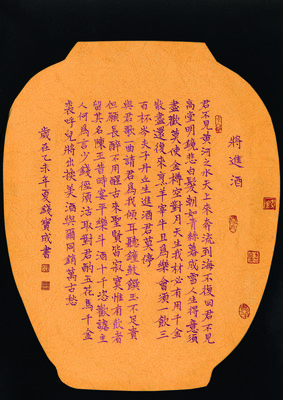 將進酒
君不見黃河之水天上來奔流到海不復回君不見
高堂明鏡悲白髮朝如青絲暮成雪人生得意須
盡歡莫使金樽空對月天生我材必有用千金
散盡還復來烹羊宰牛且爲樂會須一飲三
百杯岑夫子丹丘生進酒君莫停
與君歌一曲請君爲我傾耳聽鐘鼓饌玉不足貴
但願長醉不用醒古來聖賢皆寂寞惟有飲者
留其名陳王昔時宴平樂斗酒十千恣歡謔主
人何爲言少錢徑須沽取對君酌五花馬千金
裘呼兒將出換美酒與爾同銷萬古愁
歲在乙未年夏錢寶成書